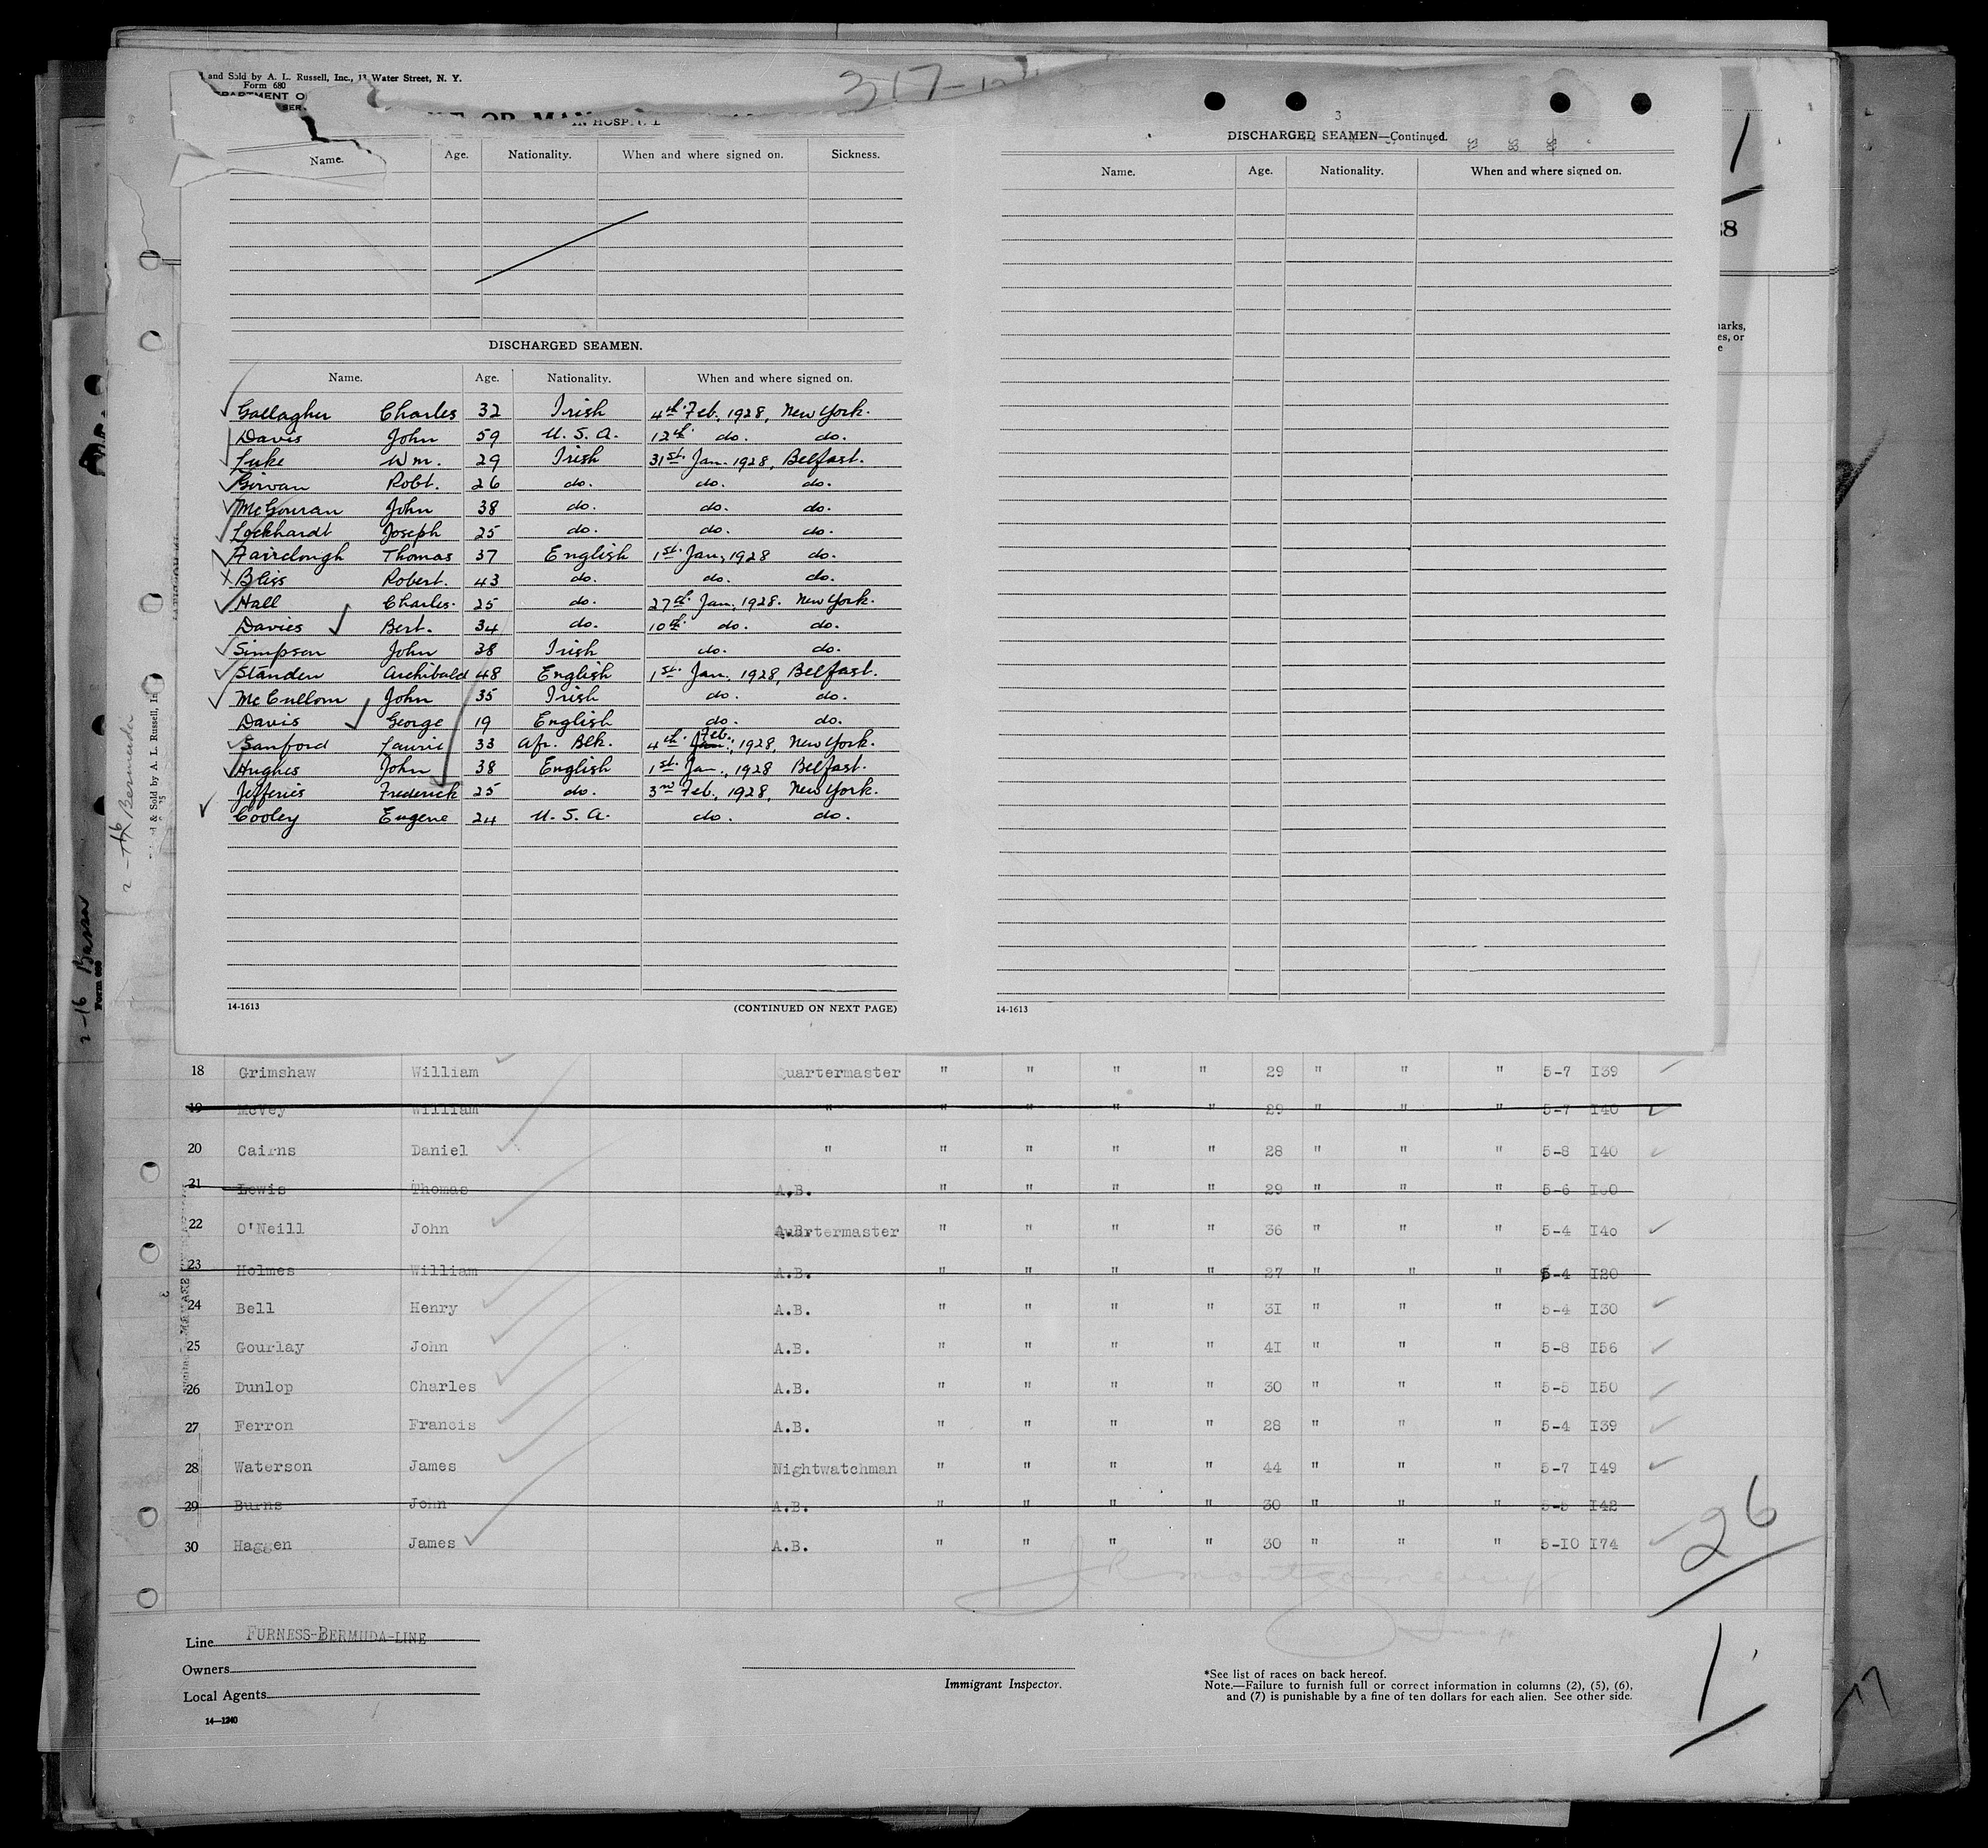 and Sold by A. L. Russell, Inc., 11 Water Street, N. Y.
Form 680
317-
IN HOSPITAL
Name. Age. Nationality. When and where signed on. Sickness.
DISCHARGED SEAMEN.
Name. Age. Nationality. When and where signed on.
Gallagher Charles 32 Irish 4th Feb. 1928, New York.
Davis John 59 U. S. A. 12th do. do.
Luke Wm. 29 Irish 31st Jan. 1928, Belfast.
Girvan Robt. 26 do. do. do.
McGouran John 38 do. do. do.
Lockhardt Joseph 25 do. do. do.
Fairclough Thomas 37 English 1st Jan, 1928 do.
Bliss Robert. 43 do. do. do.
Hall Charles. 25 do. 27th Jan, 1928. New York.
Davies Bert. 34 do. 10th do. do.
Simpson John 38 Irish do. do.
Standen Archibald 48 English 1st Jan, 1928, Belfast.
McCullom John 35 Irish do. do.
Davis George 19 English do. do.
Sanford Laurie 33 Afr. Blk. 4th Jan. Feb., 1928, New York.
Hughes John 38 English 1st Jan., 1928 Belfast.
Jefferies Frederick 25 do. 3rd Feb, 1928, New York.
Cooley Eugene 24 U. S. A. do. do.
14-1613 (CONTINUED ON NEXT PAGE)
3
DISCHARGED SEAMEN—Continued.
Name. Age. Nationality. When and where signed on.
14-1613
1
38
arks,
es, or
e
18 Grimshaw William Quartermaster " " " " 29 " " " 5-7 I39
19 McVey William " " " " " 29 " " " 5-7 I40
20 Cairns Daniel " " " " " 28 " " " 5-8 I40
21 Lewis Thomas A.B. " " " " 29 " " " 5-6 I60
22 O'Neill John Quartermaster " " " " 36 5-4 I40
23 Holmes William A.B. " " " " 27 " " " 5-4 I20
24 Bell Henry A.B. " " " " 3I " " " 5-4 I30
25 Gourlay John A.B. " " " " 4I " " " 5-8 I56
26 Dunlop Charles A.B. " " " " 30 " " " 5-5 I50
27 Ferron Francis A.B. " " " " 28 " " " 5-4 I39
28 Waterson James Nightwatchman " " " " 44 " " " 5-7 I49
29 Burns John A.B. " " " " 30 " " " 5-5 I42
30 Haggen James A.B. " " " " 30 " " " 5-I0 I74
26
1
Line FURNESS-BERMUDA-LINE
Owners
Local Agents
14—1240
Immigrant Inspector.
*See list of races on back hereof.
Note.—Failure to furnish full or correct information in columns (2), (5), (6),
and (7) is punishable by a fine of ten dollars for each alien. See other side.
17
& Sold by A. L. Russell, In
Bermuda
2-16
Form 680